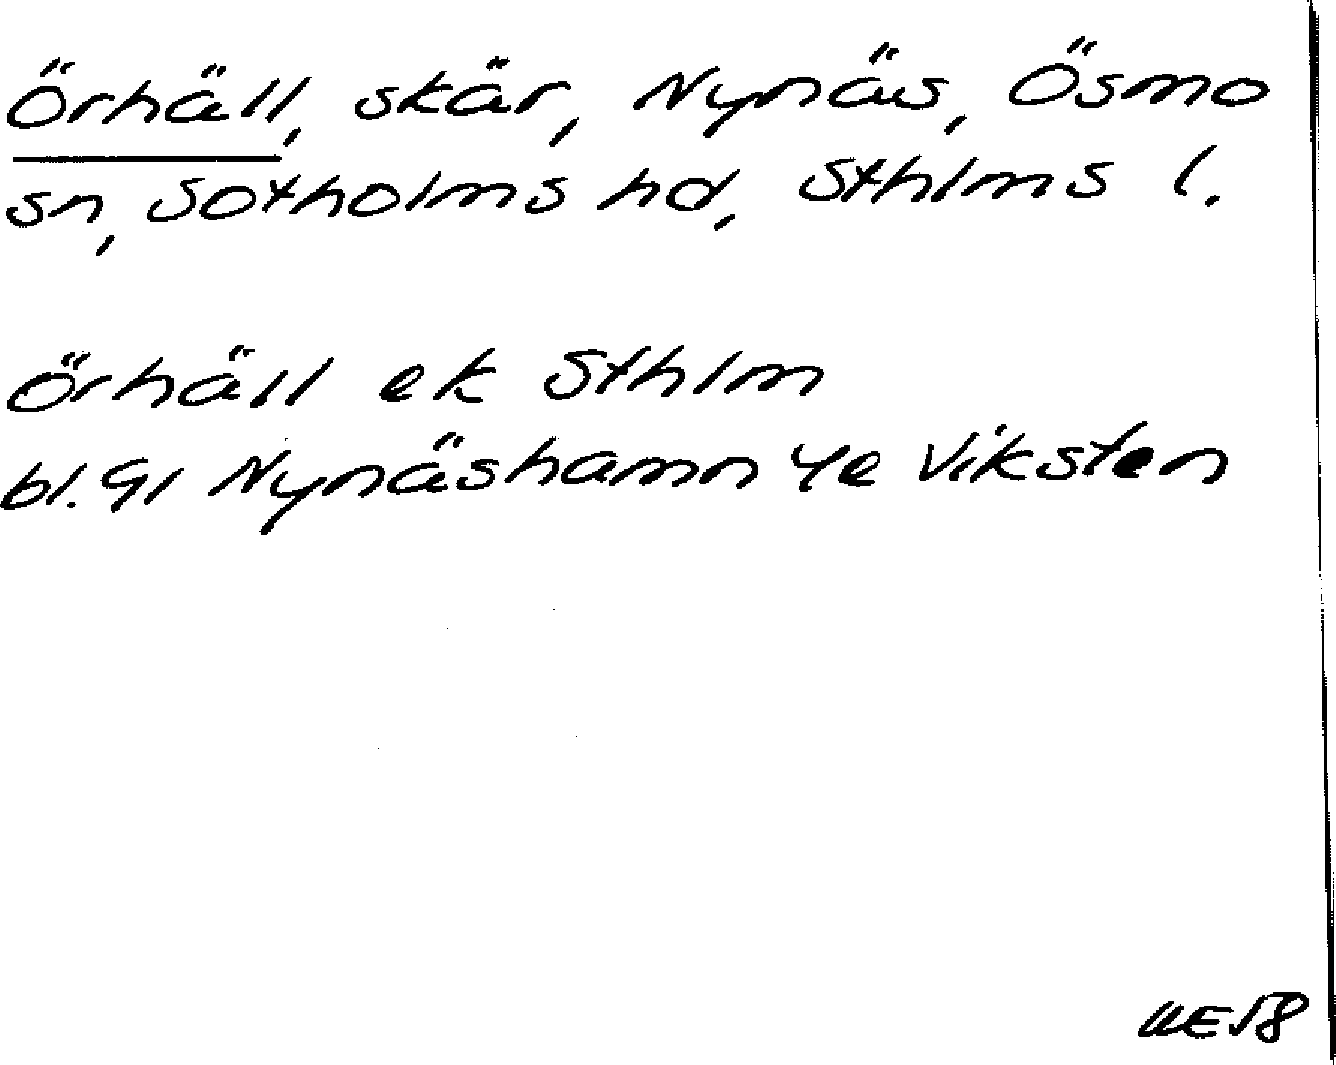 Örhäll, skär, Nynäs, Ösmo
sn, Sotholms hd, Sthlms l.
Örhäll ek Sthlm
bl. 91 Nynäshamn 4e Viksten